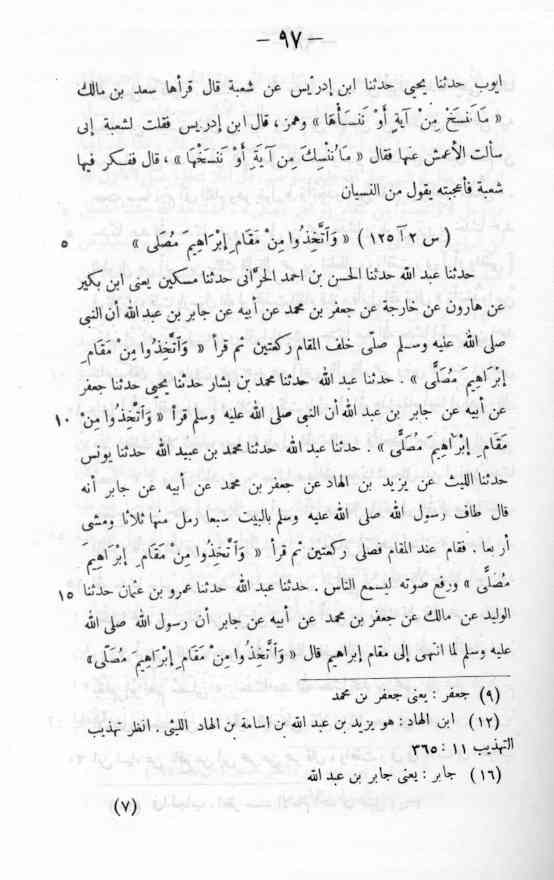 – ٩٧ –
ايوب حدثنا يحيى حدثنا ابن إدريس عن شعبة قال قرأها سعد بن مالك
« مَا نَنْسَخْ مِنْ آيَةٍ أَوْ نَنْسَأْهَا » وهمز ، قال ابن إدريس فقلت لشعبة إنى
سألت الأعمش عنها فقال « مَا نُنْسِكَ مِن آيَةٍ أَوْ نَنْسَخْهَا » ، قال ففكر فيها
شعبة فأعجبته يقول من النسيان
( س ٢ آ ١٢٥ ) « وَاتَّخِذُوا مِنْ مَقَامِ إِبْرَاهِيمَ مُصَلًّى » ٥
حدثنا عبد الله حدثنا الحسن بن احمد الحرّانى حدثنا مسكين يعنى ابن بكير
عن هارون عن خارجة عن جعفر بن محمد عن أبيه عن جابر بن عبد الله أن النبي
صلى الله عليه وسلم صلّى خلف المقام ركعتين ثم قرأ « وَاتَّخِذُوا مِنْ مَقَامِ
إِبْرَاهِيمَ مُصَلًّى » . حدثنا عبد الله حدثنا محمد بن بشار حدثنا يحيى حدثنا جعفر
عن أبيه عن جابر بن عبد الله أن النبي صلى الله عليه وسلم قرأ « وَاتَّخِذُوا مِنْ ١٠
مَقَامِ إِبْرَاهِيمَ مُصَلًّى » . حدثنا عبد الله حدثنا محمد بن عبيد الله حدثنا يونس
حدثنا الليث عن يزيد بن الهاد عن جعفر بن محمد عن أبيه عن جابر أنه
قال طاف رسول الله صلى الله عليه وسلم بالبيت سبعا رمل منها ثلاثا ومشى
أربعا . فقام عند المقام فصلى ركعتين ثم قرأ « وَاتَّخِذُوا مِنْ مَقَامِ إِبْرَاهِيمَ
مُصَلًّى » ورفع صوته ليسمع الناس . حدثنا عبد الله حدثنا عمرو بن عثمان حدثنا ١٥
الوليد عن مالك عن جعفر بن محمد عن أبيه عن جابر أن رسول الله صلى الله
عليه وسلم لما انتهى إلى مقام إبراهيم قال « وَاتَّخِذُوا مِنْ مَقَامِ إِبْرَاهِيمَ مُصَلًّى »
(٩) جعفر : يعنى جعفر بن محمد
(١٢) ابن الهاد : هو يزيد بن عبد الله بن اسامة بن الهاد الليثى . انظر تهذيب
التهذيب ١١ : ٣٦٥
(١٦) جابر : يعنى جابر بن عبد الله
(٧)